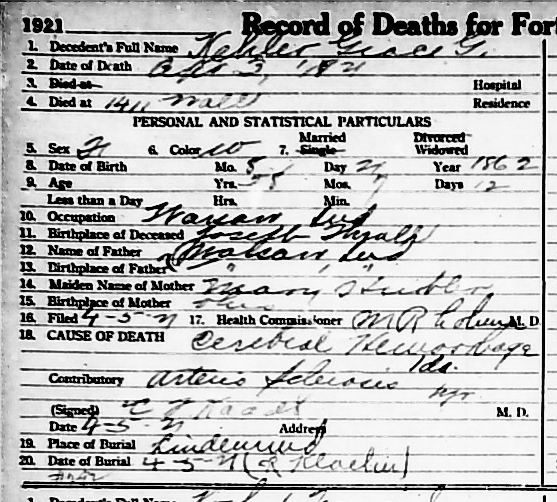 1921 Record of Deaths for Fort
1. Decedent's Full Name Kehler Grace G.
2. Date of Death Apr 3, 1921
3. Died at Hospital
4. Died at 1411 Wall Residence
PERSONAL AND STATISTICAL PARTICULARS
Married Divorced
5. Sex F 6. Color W 7. Single Widowed
8. Date of Birth Mo. 8 Day 21 Year 1862
9. Age Yrs. 58 Mos. 7 Days 12
Less than a Day Hrs. Min.
10. Occupation Warsaw Ind
11. Birthplace of Deceased Joseph
12. Name of Father Warsaw Ind
13. Birthplace of Father " "
14. Maiden Name of Mother Mary
15. Birthplace of Mother Ohio
16. Filed 4-5-21 17. Health Commissioner M. D.
18. CAUSE OF DEATH Cerebral Hemorrhage
1 da.
Contributory Arterio Sclerosis
(Signed) M. D.
Date 4-5-21 Address
19. Place of Burial Lindenwood
20. Date of Burial 4-5-21
1. Decedent's Full Name